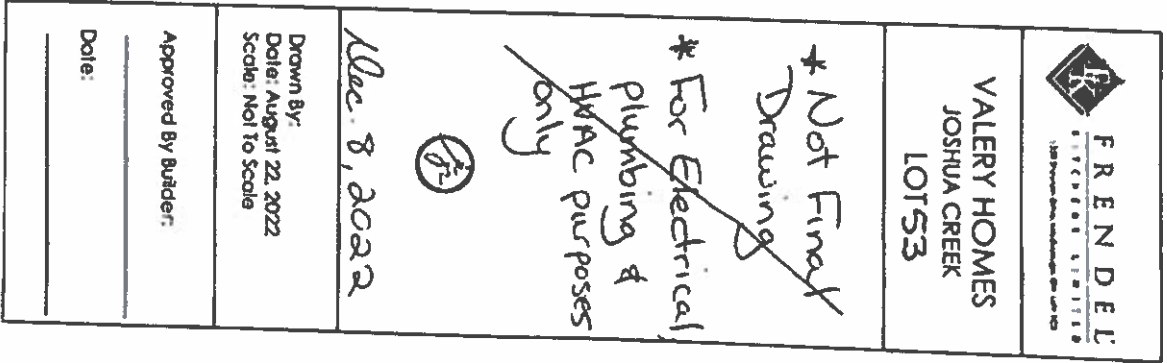 FRENDEL
KITCHENS LIMITED
VALERY HOMES
JOSHUA CREEK
LOT 53
* Not Final
Drawing
* For Electrical,
plumbing &
HVAC purposes
only
Dec. 8, 2022
Drawn By:
Date: August 22, 2022
Scale: Not To Scale
Approved By Builder:
Date: